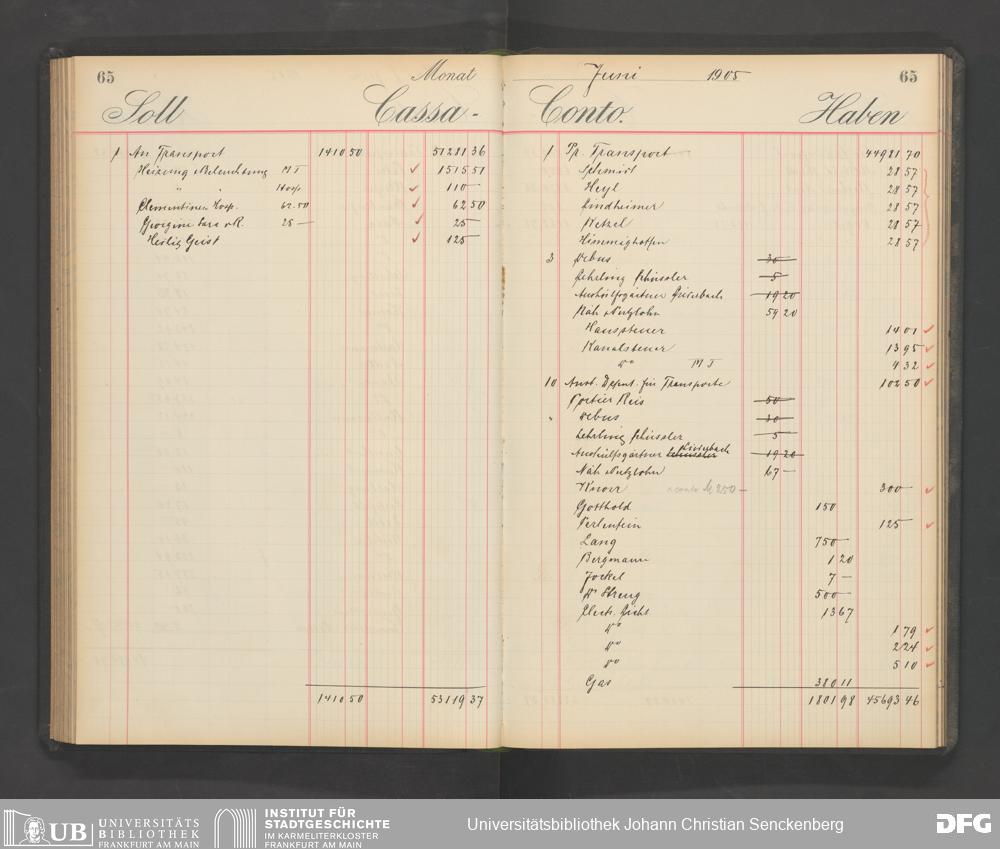 65 Monat
Soll Cassa-
1 An Transport 1410 50 51281 36
Heizung & Beleuchtung MT ✓ 1515 51
" " Hosp ✓ 110 —
Clementinen Hosp. 62.50 ✓ 62 50
Georgine Sara v R. 25 — ✓ 25 —
Heilig Geist ✓ 125 —
1410 50 53119 37
Juni 1905 65
Conto. Haben
1 Pr. Transport 44981 70
Schmidt 28 57
Heyl 28 57
Lindheimer 28 57
Wetzel 28 57
Himmighoffen 28 57
3 Debus 30 —
Lehrling Schüssler 5 —
Aushülfsgärtner Liederbach 19 20
Näh & Putzlohn 59 20
Haussteuer 14 01 ✓
Kanalsteuer 13 95 ✓
do MT 4 32 ✓
10 Aust. Depot. für Transporte 102 50 ✓
Portier Reis 50 —
" Debus 30 —
Lehrling Schüssler 5 —
Liederbach
Aushülfsgärtner Schüssler 19 20
Näh & Putzlohn 67 —
Knorr a conto M 250 — 300 — ✓
Gotthold 150
125 — ✓
Lang 750 —
Bergmann 1 20
Jockel 7 —
Dr Streng 500 —
Electr. Licht 13 67
do 1 79 ✓
do 2 24 ✓
do 5 10 ✓
Gas 380 11
1801 98 45693 46
UB UNIVERSITÄTS
BIBLIOTHEK
FRANKFURT AM MAIN
INSTITUT FÜR
STADTGESCHICHTE
IM KARMELITERKLOSTER
FRANKFURT AM MAIN
Universitätsbibliothek Johann Christian Senckenberg
DFG